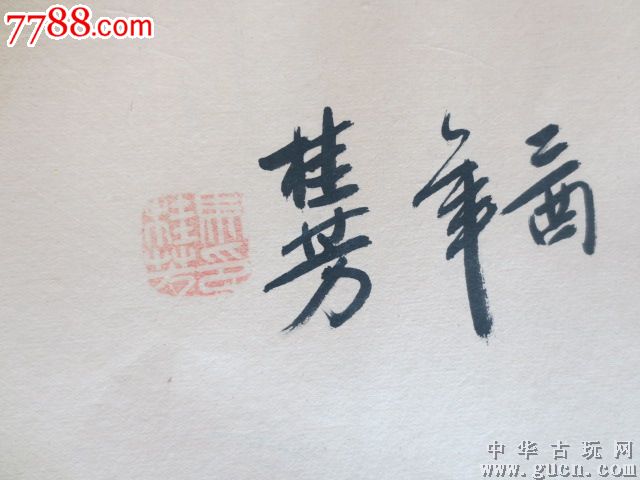 7788.com
乙酉
年
桂芳
中华古玩网
www.gucn.com